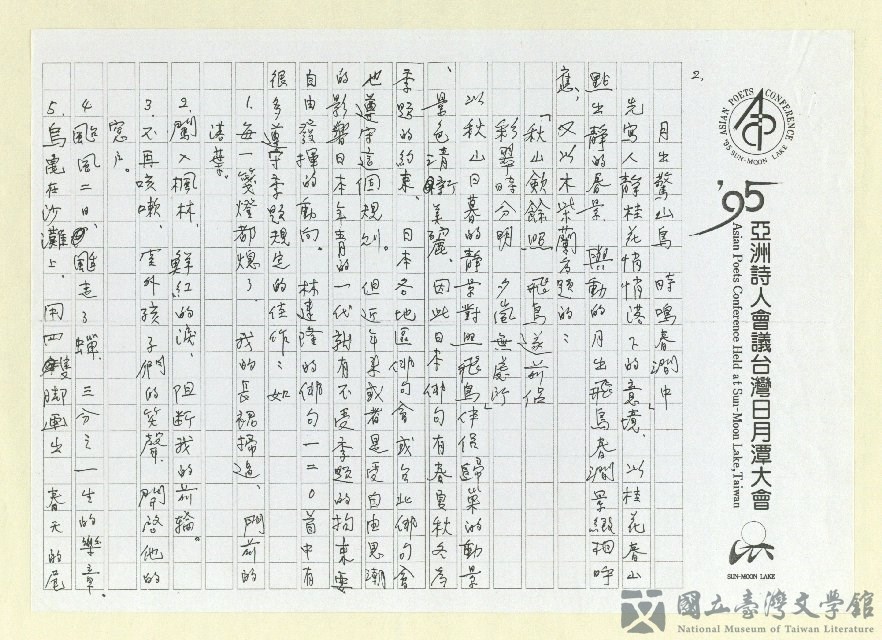 2.
ASIAN POETS CONFERENCE
'95 SUN-MOON LAKE
'95
亞洲詩人會議台灣日月潭大會
Asian Poets Conference Held at Sun-Moon Lake, Taiwan
SUN-MOON LAKE
月出驚山鳥 時鳴春澗中
先寫人靜桂花悄悄落下的意境，以桂花春山
點出靜的春景與動的月出飛鳥春澗景緻相呼
應，又以木柴蘭為題的：
「秋山歛餘照 飛鳥逐前侶
彩翠時分明 夕嵐無處所」
以秋山日暮的靜景對照飛鳥伴侶歸巢的動景
、景色清新美麗。因此日本俳句有春夏秋冬為
季題的約束，日本各地區俳句會或台北俳句會
也遵守這個規則。但近年來或者是受自由思潮
的影響日本年青的一代就有不受季題的拘束要
自由發揮的動向。林建隆的俳句一二０首中有
很多遵守季題規定的佳作：如
1. 每一盞燈都熄了 我的長裙掃過、門前的
落葉。
2. 闖入楓林，鮮紅的淚，阻斷我的前輪。
3. 不再咳嗽，室外孩子們的笑聲，開啓他的
窗戶。
4. 颱風二日，颳走了蟬，三分之一生的樂章。
5. 烏龜在沙灘上，用四雙腳運出 春天的尾
國立臺灣文學館
National Museum of Taiwan Literature